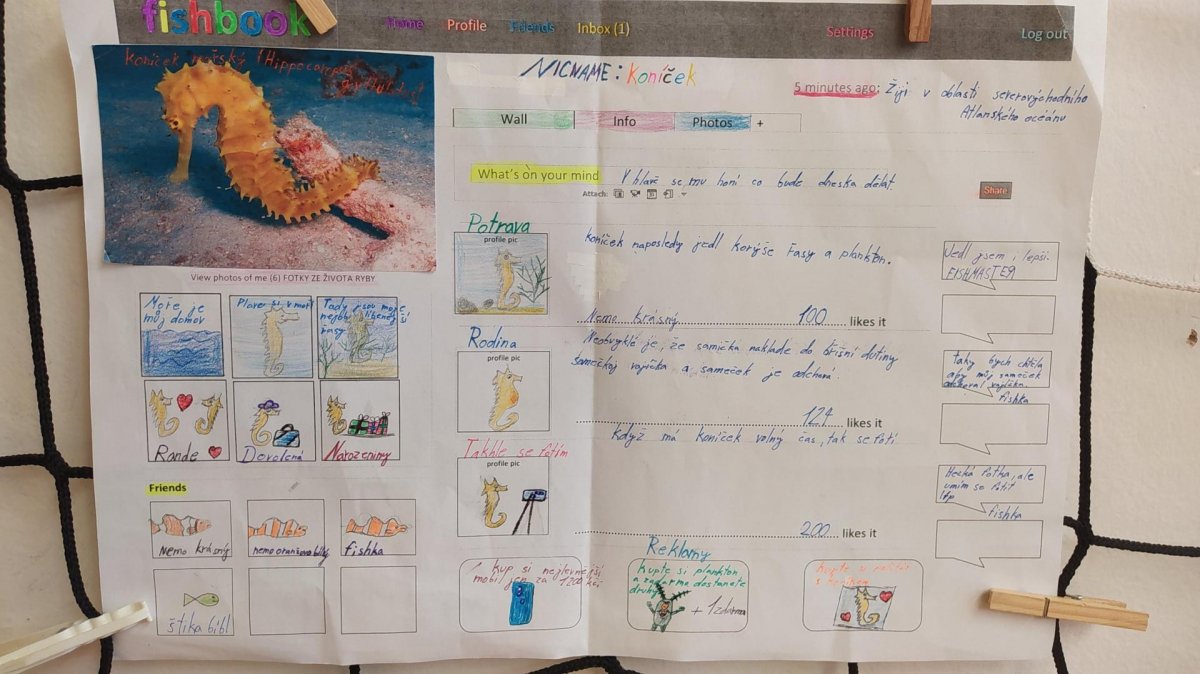 fishbook
Home Profile Friends Inbox (1) Settings Log out
Koníček mořský (Hippocampus
NICNAME: Koníček
5 minutes ago: Žiji v oblasti severovýchodního
Atlanského oceánu
Wall Info Photos +
What's on your mind V hlavě se mu honí co bude dneska dělat.
Attach:
Share
View photos of me (6) FOTKY ZE ŽIVOTA RYBY
Moře je
můj domov
Plave si v moři
Tady jsou moje
řasy
Rande
Dovolená
Narozeniny
Friends
Nemo krásný
nemo oranžovo bílý
fishka
štika bibl
Potrava
profile pic
Koníček naposledy jedl korýše řasy a plankton.
Nemo krásný 100 likes it
Jedl jsem i lepší.
FISHMASTER
Rodina
profile pic
Neobvyklé je, že samička naklade do břišní dutiny
samečkoj vajíčka a sameček je odchová.
124 likes it
taky bych chtěla
aby můj sameček
odchoval vajíčka.
fishka
Takhle se fotím
profile pic
Když má koníček volný čas, tak se fotí
200 likes it
Hezká fotka, ale
umím se fotit
líp
fishka
Reklamy
Kup si nejlevnější
mobil jen za 1200 kči
Kupte si plankton
a zadarmo dostanete
druhý
+ 1 zdarma
Kupte si
s